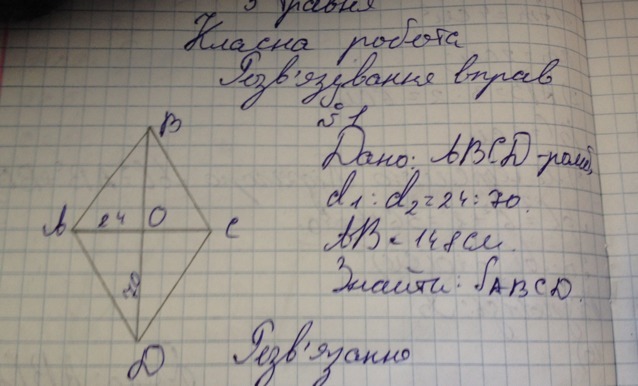 травня
Класна робота
Розв'язування вправ
№ 1
Дано: ABCD - ромб,
d1 : d2 = 24 : 70.
AB = 148 см.
Знайти: SABCD.
Розв'язання
B
A 24 O C
70
D